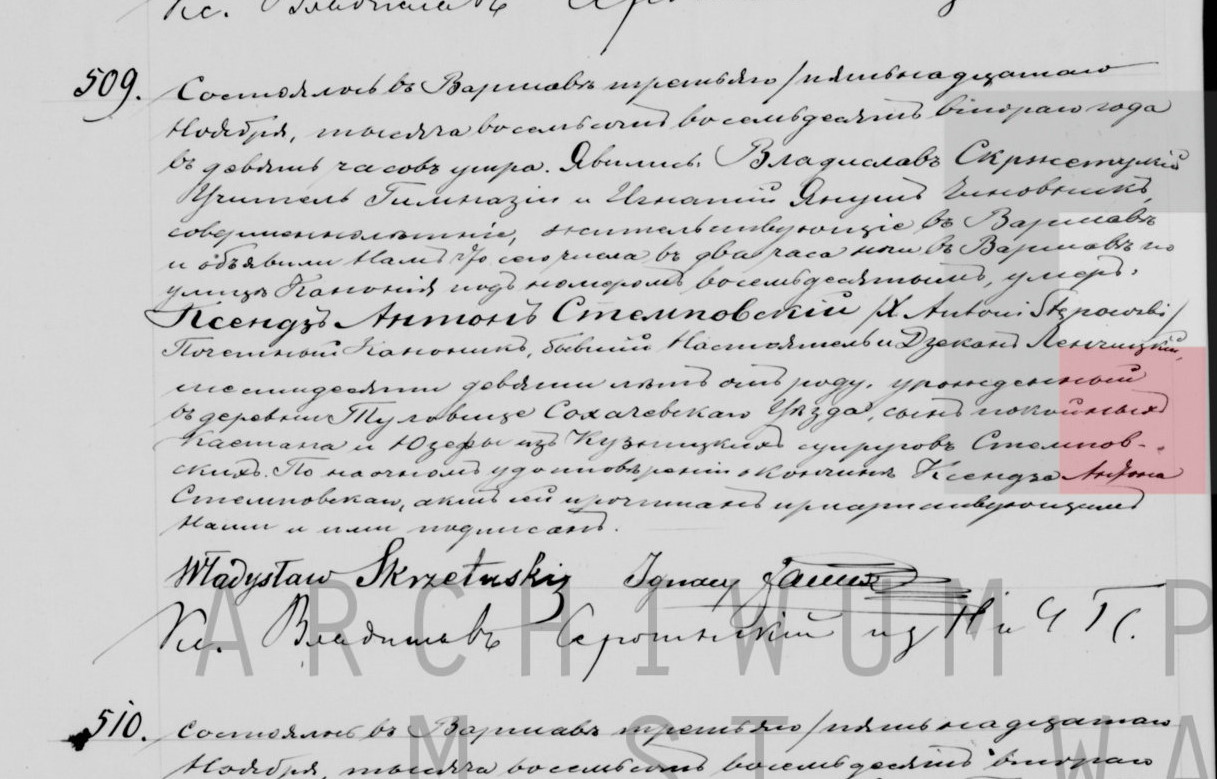 Кс. Владиславъ
509. Состоялось въ Варшавѣ третьяго /пятьнадцатаго
Ноября, тысяча восемьсотъ восемьдесятъ втораго года
въ девять часовъ утра. Явились Владиславъ Скржетускій
Учитель Гимназіи и Игнатій Янушъ Чиновникъ,
совершеннолѣтніе, жительствующіе въ Варшавѣ
и объявили Намъ что сего числа въ два часа ночи въ Варшавѣ по
улицѣ Канонія подъ номеромъ восемьдесятымъ, умеръ,
Ксендзъ Антонъ Стемповскій /X Antoni Stępowski/
Почетный Каноникъ, бывшій Настоятель и Дзеканъ Ленчицкій,
шестидесяти девяти лѣтъ отъ роду, урожденный
въ деревни Туловице Сохачевскаго Уѣзда, сынъ покойныхъ
Каетана и Юзефы изъ Кузницкихъ супруговъ Стемпов-
скихъ. По наочномъ удостовѣреніи о кончинѣ Ксендза Антона
Стемповскаго, актъ сей прочитанъ присутствующимъ
Нами и ими подписанъ.
Władysław Skrzetuski Ignacy Janusz
Кс. Владиславъ из Н и Ч Г С.
ARCHIWUM P
510. Состоялось въ Варшавѣ третьяго /пятьнадцатаго
M ST WA
Ноября, тысяча восемьсотъ восемьдесятъ втораго